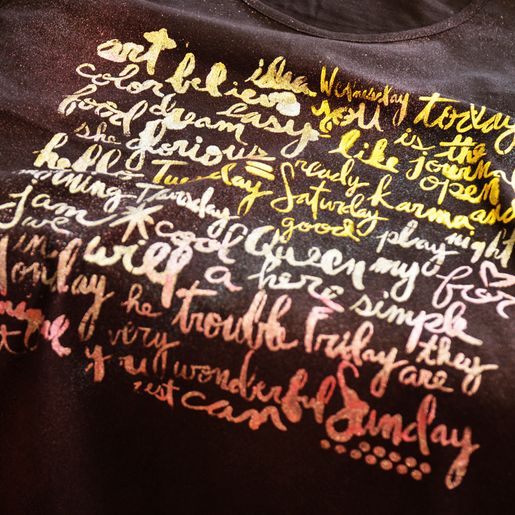 art idea Wednesday today
color believe you is the
food dream easy like journal
she glorious ready open
hello Tuesday Saturday karma and
morning Thursday good play night
jam * cool Queen my i for
we will a here simple
in Monday he trouble Friday they
very are
you wonderful Sunday
best can